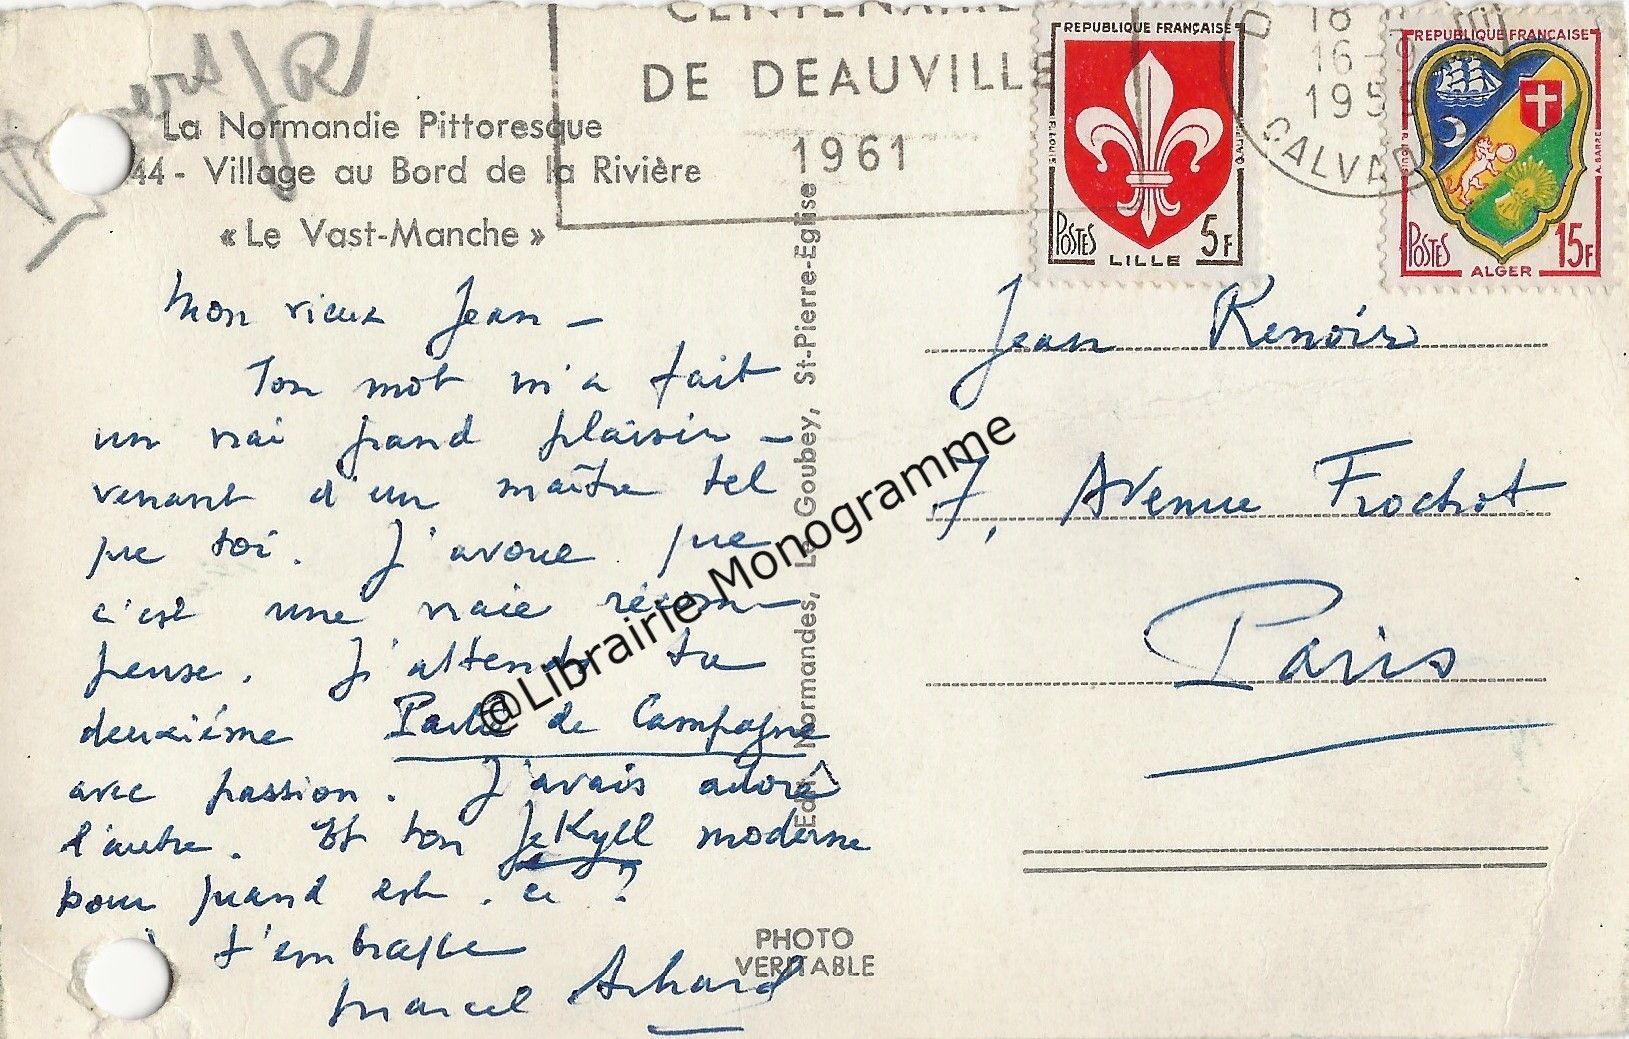 CENTENAIRE
DE DEAUVILLE
1961
18 H
16-9
1959
CALVADOS
REPUBLIQUE FRANÇAISE
POSTES
5F
LILLE
REPUBLIQUE FRANÇAISE
POSTES
15F
ALGER
La Normandie Pittoresque
44 - Village au Bord de la Rivière
« Le Vast-Manche »
Mon vieux Jean -
Ton mot m'a fait
un vrai grand plaisir -
venant d'un maître tel
que toi. J'avoue que
c'est une vraie récom-
pense. J'attends ta
deuxiéme Partie de Campagne
avec passion. J'avais adoré
l'autre. Et ton Jekyll moderne
pour quand est-ce ?
t'embrasse
Marcel Achard
Edit. Normandes, Le Goubey, St-Pierre-Eglise
PHOTO
VERITABLE
Jean Renoir
7, Avenue Frochot
Paris
@Librairie Monogramme